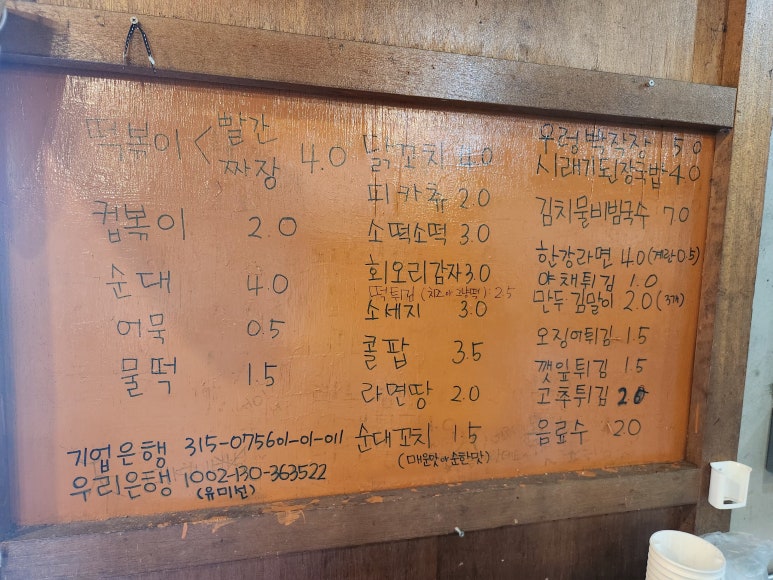 떡볶이 < 빨간 짜장 4.0
컵볶이 2.0
순대 4.0
어묵 0.5
물떡 1.5
기업은행 315-075601-01-011
우리은행 1002-130-363522
(유미선)
닭꼬치 4.0
피카츄 2.0
소떡소떡 3.0
회오리감자 3.0
떡튀김 (치즈 2.5
소세지 3.0
콜팝 3.5
라면땅 2.0
순대꼬치 1.5
(매운맛 순한맛)
우렁빡작장 5.0
시래기된장국밥 4.0
김치물비빔국수 7.0
한강라면 4.0 (계란0.5)
야채튀김 1.0
만두 김말이 2.0 (3개)
오징어튀김 1.5
깻잎튀김 1.5
고추튀김 2.0
음료수 2.0